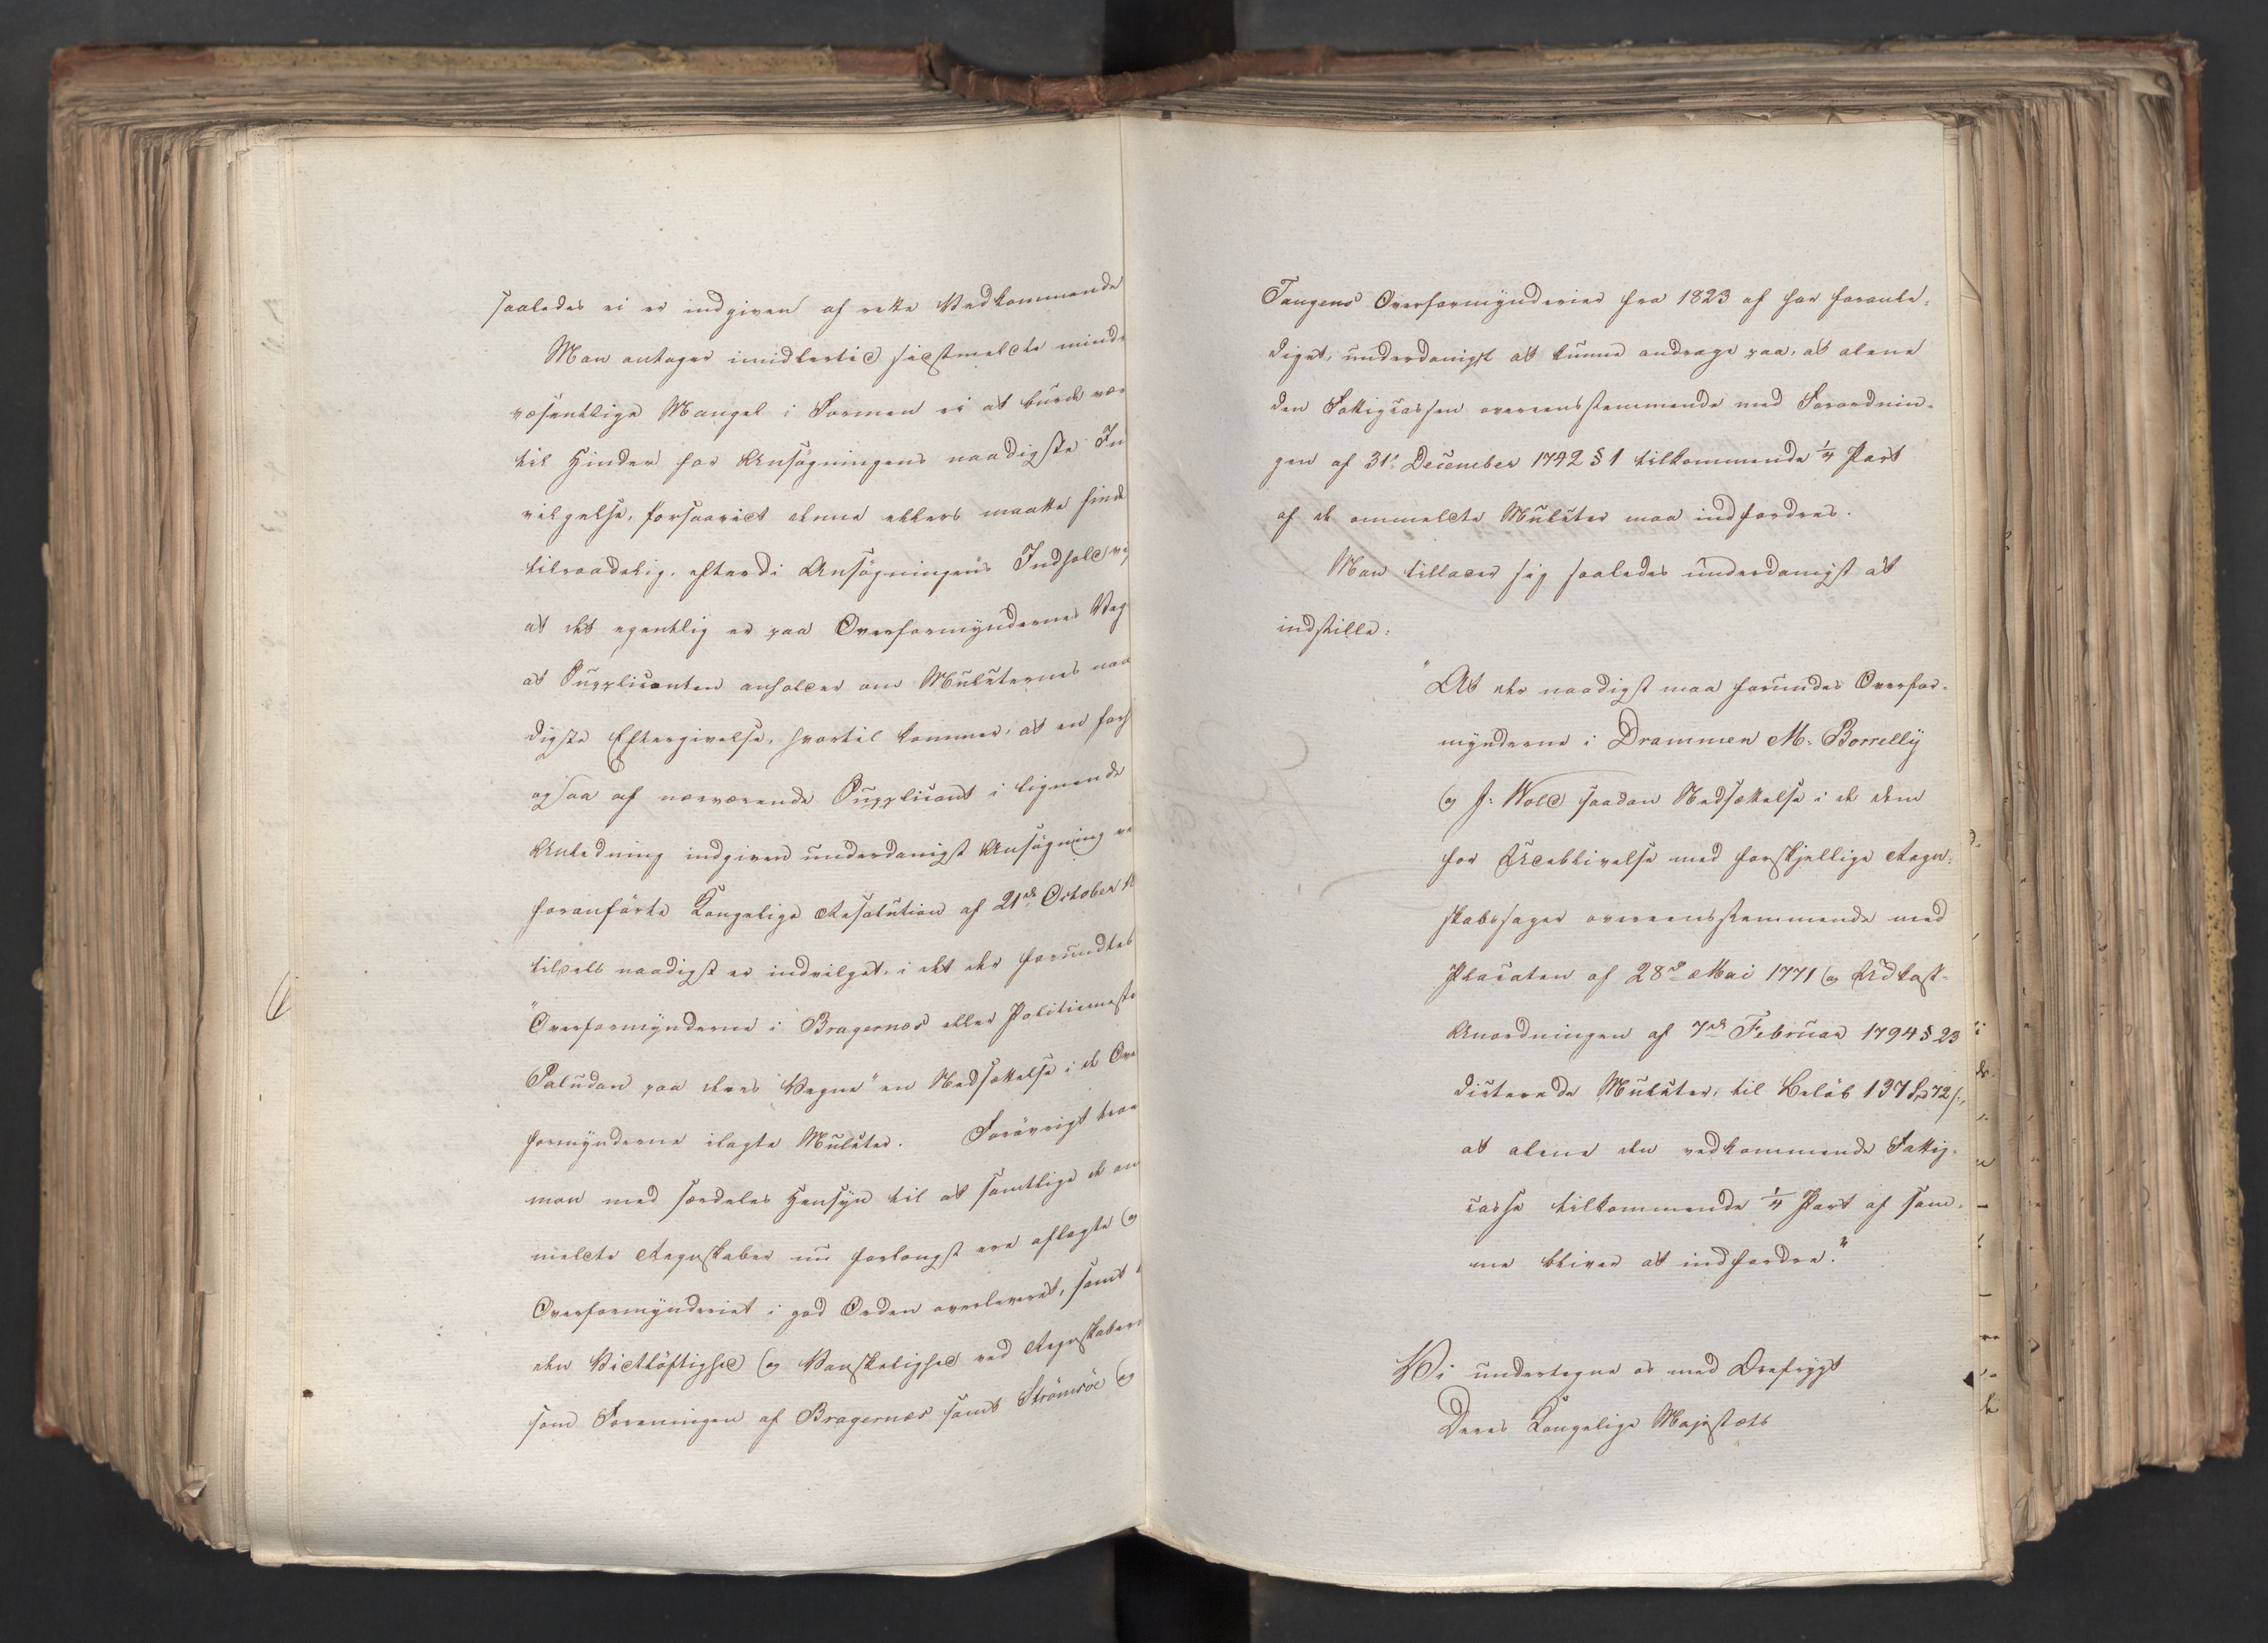 saaledes ei er indgiven af rette Vedkommende
Man antager imidlertid sidstmeldte mindre
væsentlige Mangel i Formen ei at burde være
til Hinder for Ansøgningens naadigste Ind
vilgelse, forsaavidt denne ellers maatte finde
tilraadelig, efterdi Ansøgningens Indhold vi
at det egentlig er paa Overformyndernes Veg
at Supplicanten anholder om Mulcternes naa
digste Eftergivelse, hvortil kommer, at en for
ogsaa af nærværende Supplicant i lignende
Anledning indgiven underdanigst Ansøgning ve
foranførte Kongelige Resolution af 21de October 18
tildels naadigst er indvilget, i det der forundtes
"Overformynderne i Bragernæs eller Politiemeste
Paludan paa deres Vegne" en Nedsættelse i de Ove
formynderne ilagte Mulcter. Forøvrigt troe
man med særdeles Hensyn til at samtlige de om
meldte Regnskaber nu forlængst ere aflagte og
Overformynderiet i god Orden overleveret, samt
den Vidtløftighed og Vanskelighed ved Regnskabern
som Foreningen af Bragernæs samt Strømsöe og
Tangens Overformynderier fra 1823 af har foranle-
diget, underdanigst at kunne andrage paa, at alene
den Fattigcassen overeensstemmende med Forordnin-
gen af 31te December 1742 § 1 tilkommende 1/4 Part
af de ommeldte Mulcter maa indfordres.
Man tillader sig saaledes underdanigst at
indstille:
"At der naadigst maa forundes Overfor-
mynderne i Drammen M. Borrelly
og J. Wold saadan Nedsættelse i de dem
for Udeblivelse med forskjellige Regn-
skabssager overeensstemmende med
Placaten af 28de Mai 1771 og Udkast-
Anordningen af 7de Februar 1794 § 23
dicterede Mulcter, til Beløb 137 Spd 72 s,
at alene den vedkommende Fattig-
casse tilkommende 1/4 Part af sam-
me bliver at indfordre."
Vi undertegne os med Ærefrygt
Deres Kongelige Majestæts